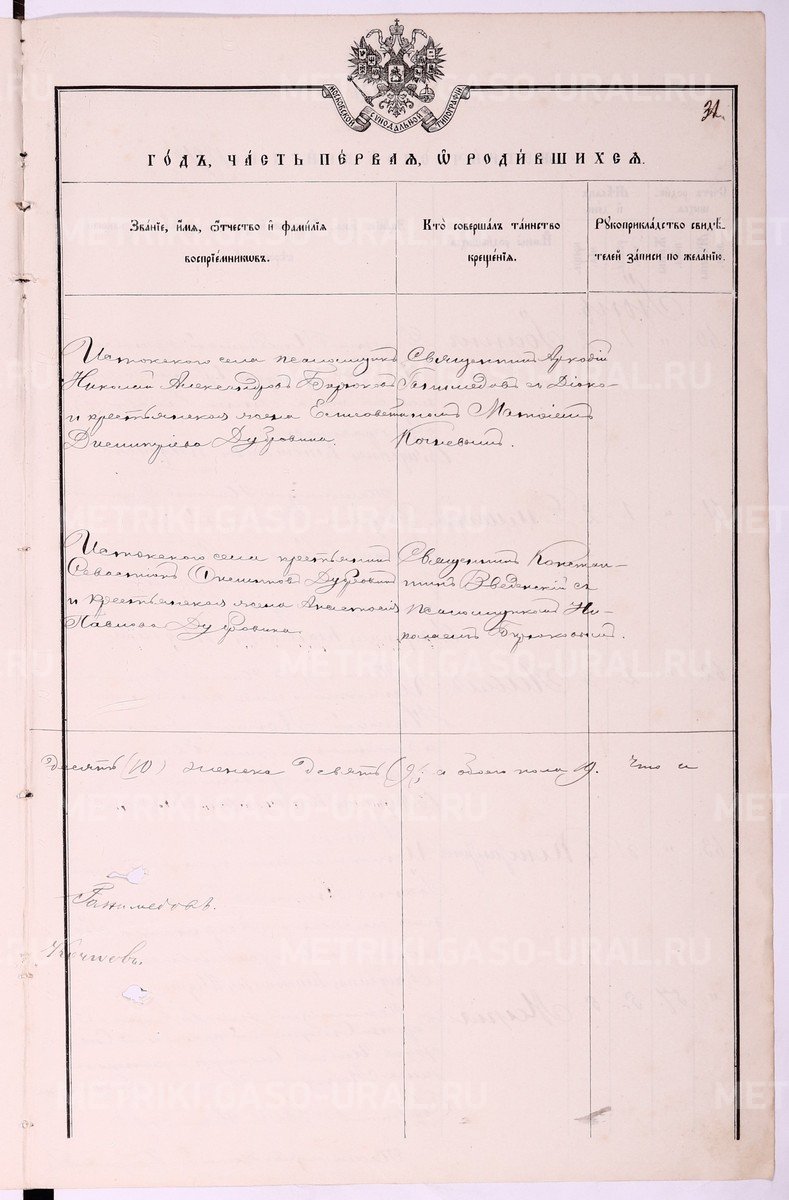 МОСКОВСКОЙ СѴНОДАЛЬНОЙ ТИПОГРАФІИ
31.
ГО́ДЪ, ЧА́СТЬ ПЕ́РВАЯ, Ѿ РОДИ́ВШИХСЯ.
Зва́нїе, и҆́мя, ѻ҆́тчество и҆ фами́лїя
воспрїе́мникѡвъ.
Кто̀ соверша́лъ та́инство
креще́нїя.
Рꙋкоприкла́дство свидѣ́-
телей за́писи по жела́нїю.
Истокскаго села псаломщикъ
Николай Александровъ Бирюковъ
и крестьянская жена Елисавета
Димитріева Дубровина.
Священникъ Аркадій
Ганимедовъ съ Діако-
номъ
Кочневымъ.
Истокскаго села крестьянинъ
Севастіанъ Дубровинъ
и крестьянская жена Анастасія
Павлова Дубровина.
Священникъ Констан-
тинъ Введенскій съ
Псаломщикомъ Ни-
колаемъ Бирюковымъ.
Десять (10) женска Девять (9), а обоего пола 19. Что и
Ганимедовъ.
Кочневъ.
METRIKI.GASO-URAL.RU